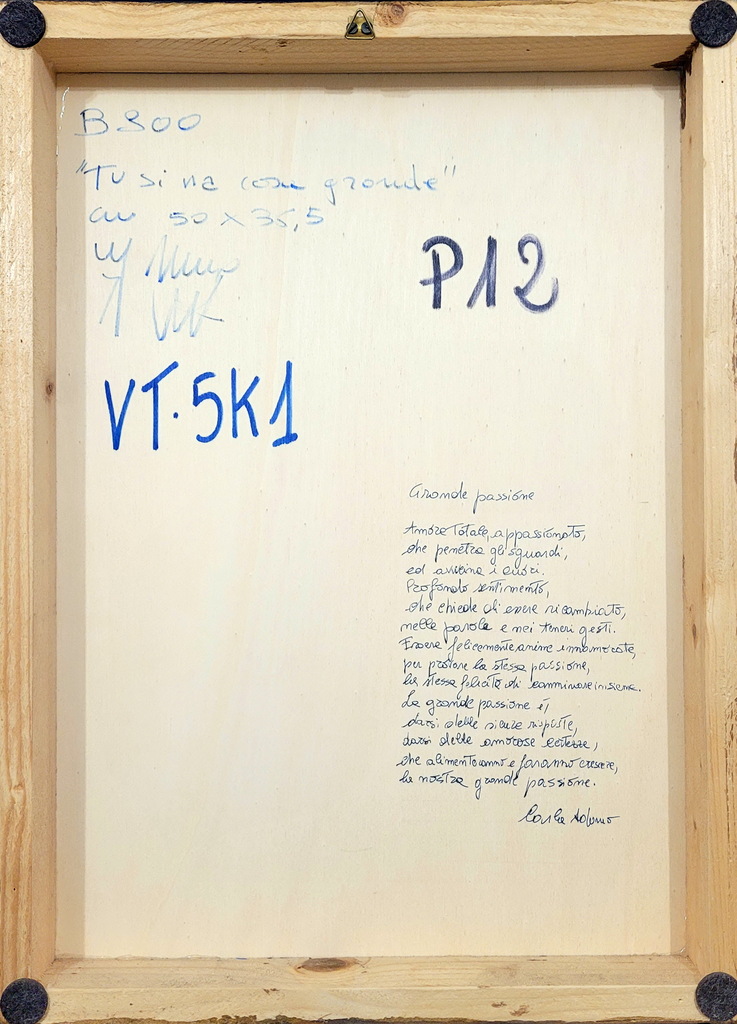 B300
"Tu si na cosa grande"
cm 50 x 35,5
P12
VT.5K1
Grande passione
Amore totale, appassionato,
che penetra gli sguardi,
ed avvicina i cuori.
Profondo sentimento,
che chiede di essere ricambiato,
nelle parole e nei teneri gesti.
Essere felicemente anime innamorate,
per provare la stessa passione,
la stessa felicità di camminare insieme.
La grande passione è,
darsi delle sicure risposte,
darsi delle amorose certezze,
che alimenteranno e faranno crescere,
la nostra grande passione.